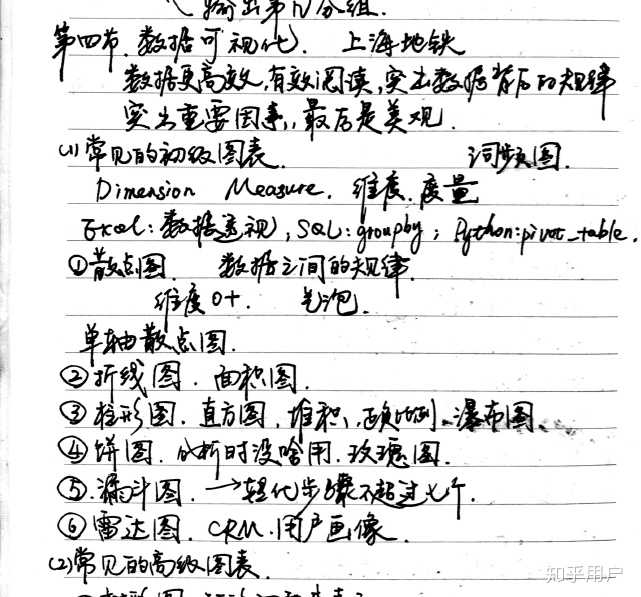 输出第N分组.
第四节.数据可视化. 上海地铁
数据更高效,有效阅读,突出数据背后的规律
突出重要因素,最后是美观.
(1)常见的初级图表. 词频图.
Dimension Measure. 维度.度量
Excel:数据透视,SQL:groupby;Python:pivot_table.
①散点图. 数据之间的规律.
维度0+. 气泡.
单轴散点图.
②折线图.面积图.
③柱形图.直方图,堆积,瀑布图.
④饼图.分析时没啥用.玫瑰图.
⑤.漏斗图.→步骤不超过七个.
⑥雷达图.CRM.用户画像.
(2)常见的高级图表.
知乎用户